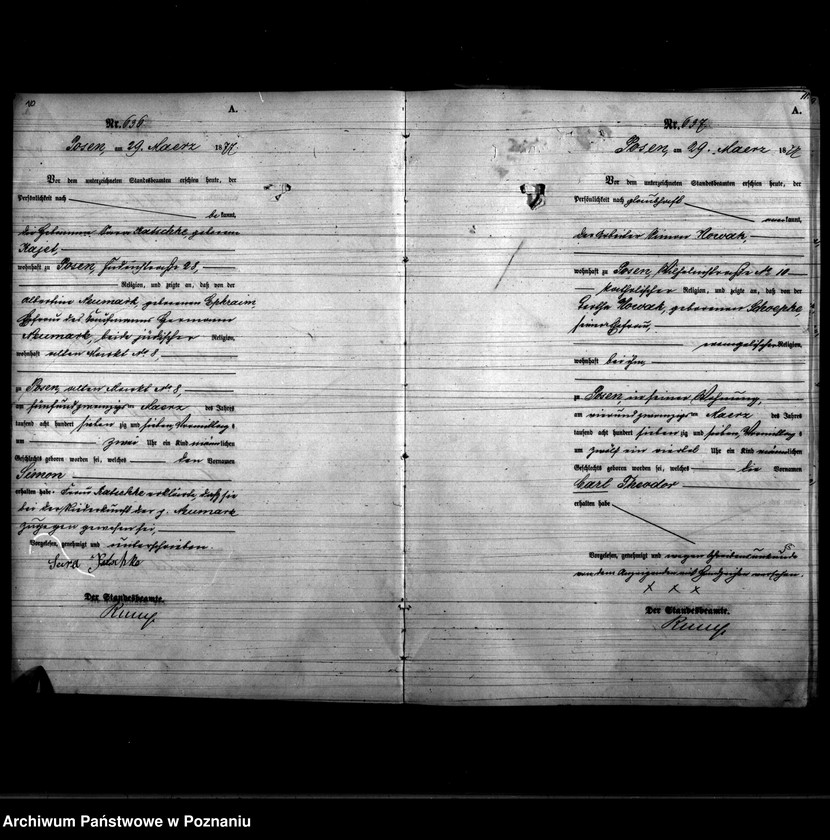 70
A.
Nr. 636
Posen, am 29. Maerz 1877
Vor dem unterzeichneten Standesbeamten erschien heute, der
Persönlichkeit nach
be kannt,
die Hebamme Ratschke, geborene
Kajet,
wohnhaft zu Posen, 28,
Religion, und zeigte an, daß von der
Albertine Neumark, geborenen Ephraim,
Ehefrau des Kaufmanns Hermann
Neumark, beide jüdischer Religion,
wohnhaft alten Markt No 8,
zu Posen, alten Markt No 8,
am fünfundzwanzigsten Maerz des Jahres
tausend acht hundert sieben zig und sieben, Vormittags
um zwei Uhr ein Kind männlichen
Geschlechts geboren worden sei, welches den Vornamen
Simon
erhalten habe. Frau Ratschke erklärte, daß sie
bei der Niederkunft der p. Neumark
zugegen gewesen sei,
Vorgelesen, genehmigt und unterschrieben.
Der Standesbeamte.
A.
Nr. 637
Posen, am 29. Maerz 1877
Vor dem unterzeichneten Standesbeamten erschien heute, der
Persönlichkeit nach glaubhaft
kannt,
der Arbeiter Simon Nowak,
wohnhaft zu Posen, Wilhelmstraße No 10
katholischer Religion, und zeigte an, daß von der
Nowak, geborenen
seiner Ehefrau,
evangelischer Religion,
wohnhaft bei ihm,
zu Posen, in seiner Wohnung,
am vierundzwanzigsten Maerz des Jahres
tausend acht hundert sieben zig und sieben, Vormittags
um zwölf ein viertel Uhr ein Kind männlichen
Geschlechts geboren worden sei, welches die Vornamen
Carl Theodor
erhalten habe
Vorgelesen, genehmigt und wegen Schreibensunkunde
von dem Anzeigenden mit Handzeichen versehen.
x x x
Der Standesbeamte.
Archiwum Państwowe w Poznaniu